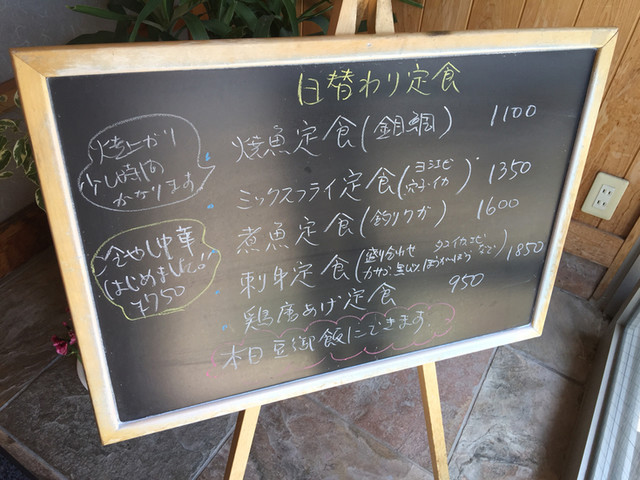 日替わり定食
焼魚定食(銀鯛) 1100
ミックスフライ定食(ヨシエビ 穴子・イカ) 1350
煮魚定食(釣りクガ) 1600
刺身定食(盛り合わせ 1850
鶏唐あげ定食 950
本日豆御飯にできます。
焼き上がり
少し時間の
かかります
冷やし中華
はじめました!!
¥750